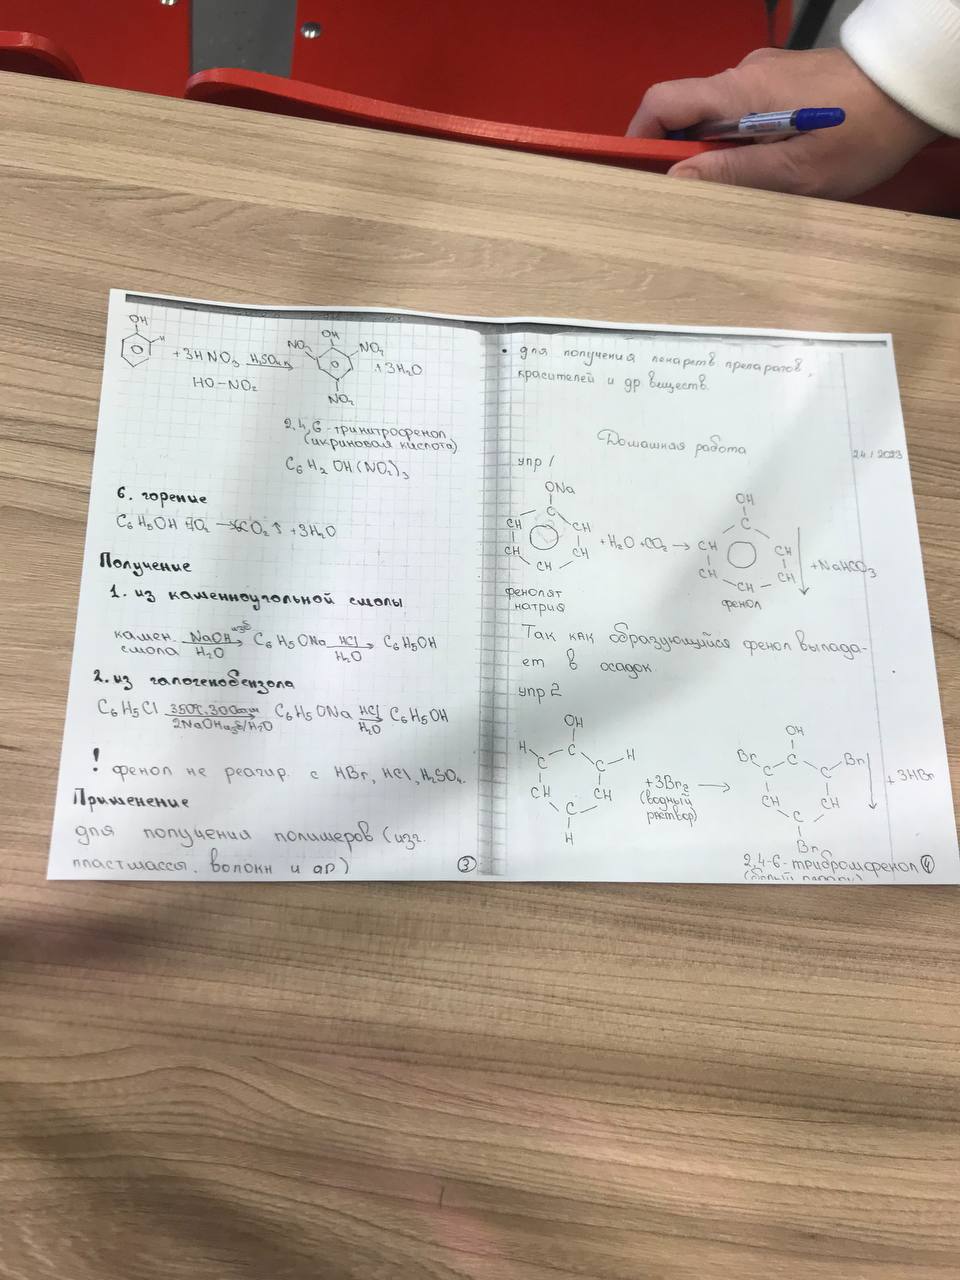 OH
H
+3HNO₃ H₂SO₄
HO-NO₂
OH
NO₂
NO₂
NO₂
+3H₂O
2,4,6-тринитрофенол
(пикриновая кислота)
C₆H₂OH(NO₂)₃
6. горение
C₆H₅OH +7O₂ → 6CO₂↑ +3H₂O
Получение
1. из каменноугольной смолы
камен. смола NaOH изб H₂O → C₆H₅ONa HCl H₂O → C₆H₅OH
2. из галогенобензола
C₆H₅Cl 350°C, 300атм 2NaOH изб/H₂O → C₆H₅ONa HCl H₂O → C₆H₅OH
! фенол не реагир. с HBr, HCl, H₂SO₄.
Применение
для получения полимеров (изг.
пластмассы, волокн и др)
3
• для получения лекарств. препаратов,
красителей и др веществ.
Домашная работа
упр 1
ONa
C
CH
CH
CH
CH
CH
+H₂O +CO₂ →
OH
C
CH
CH
CH
CH
CH
↓ +NaHCO₃
фенолят
натрия
фенол
Так как образующийся фенол выпада-
ет в осадок.
упр 2
OH
H
C
H
C
C
CH
CH
C
H
+3Br₂
(водный
раствор)
→
OH
Br
C
Br
C
C
CH
CH
C
Br
↓ + 3HBr
2,4-6-трибромфенол
4